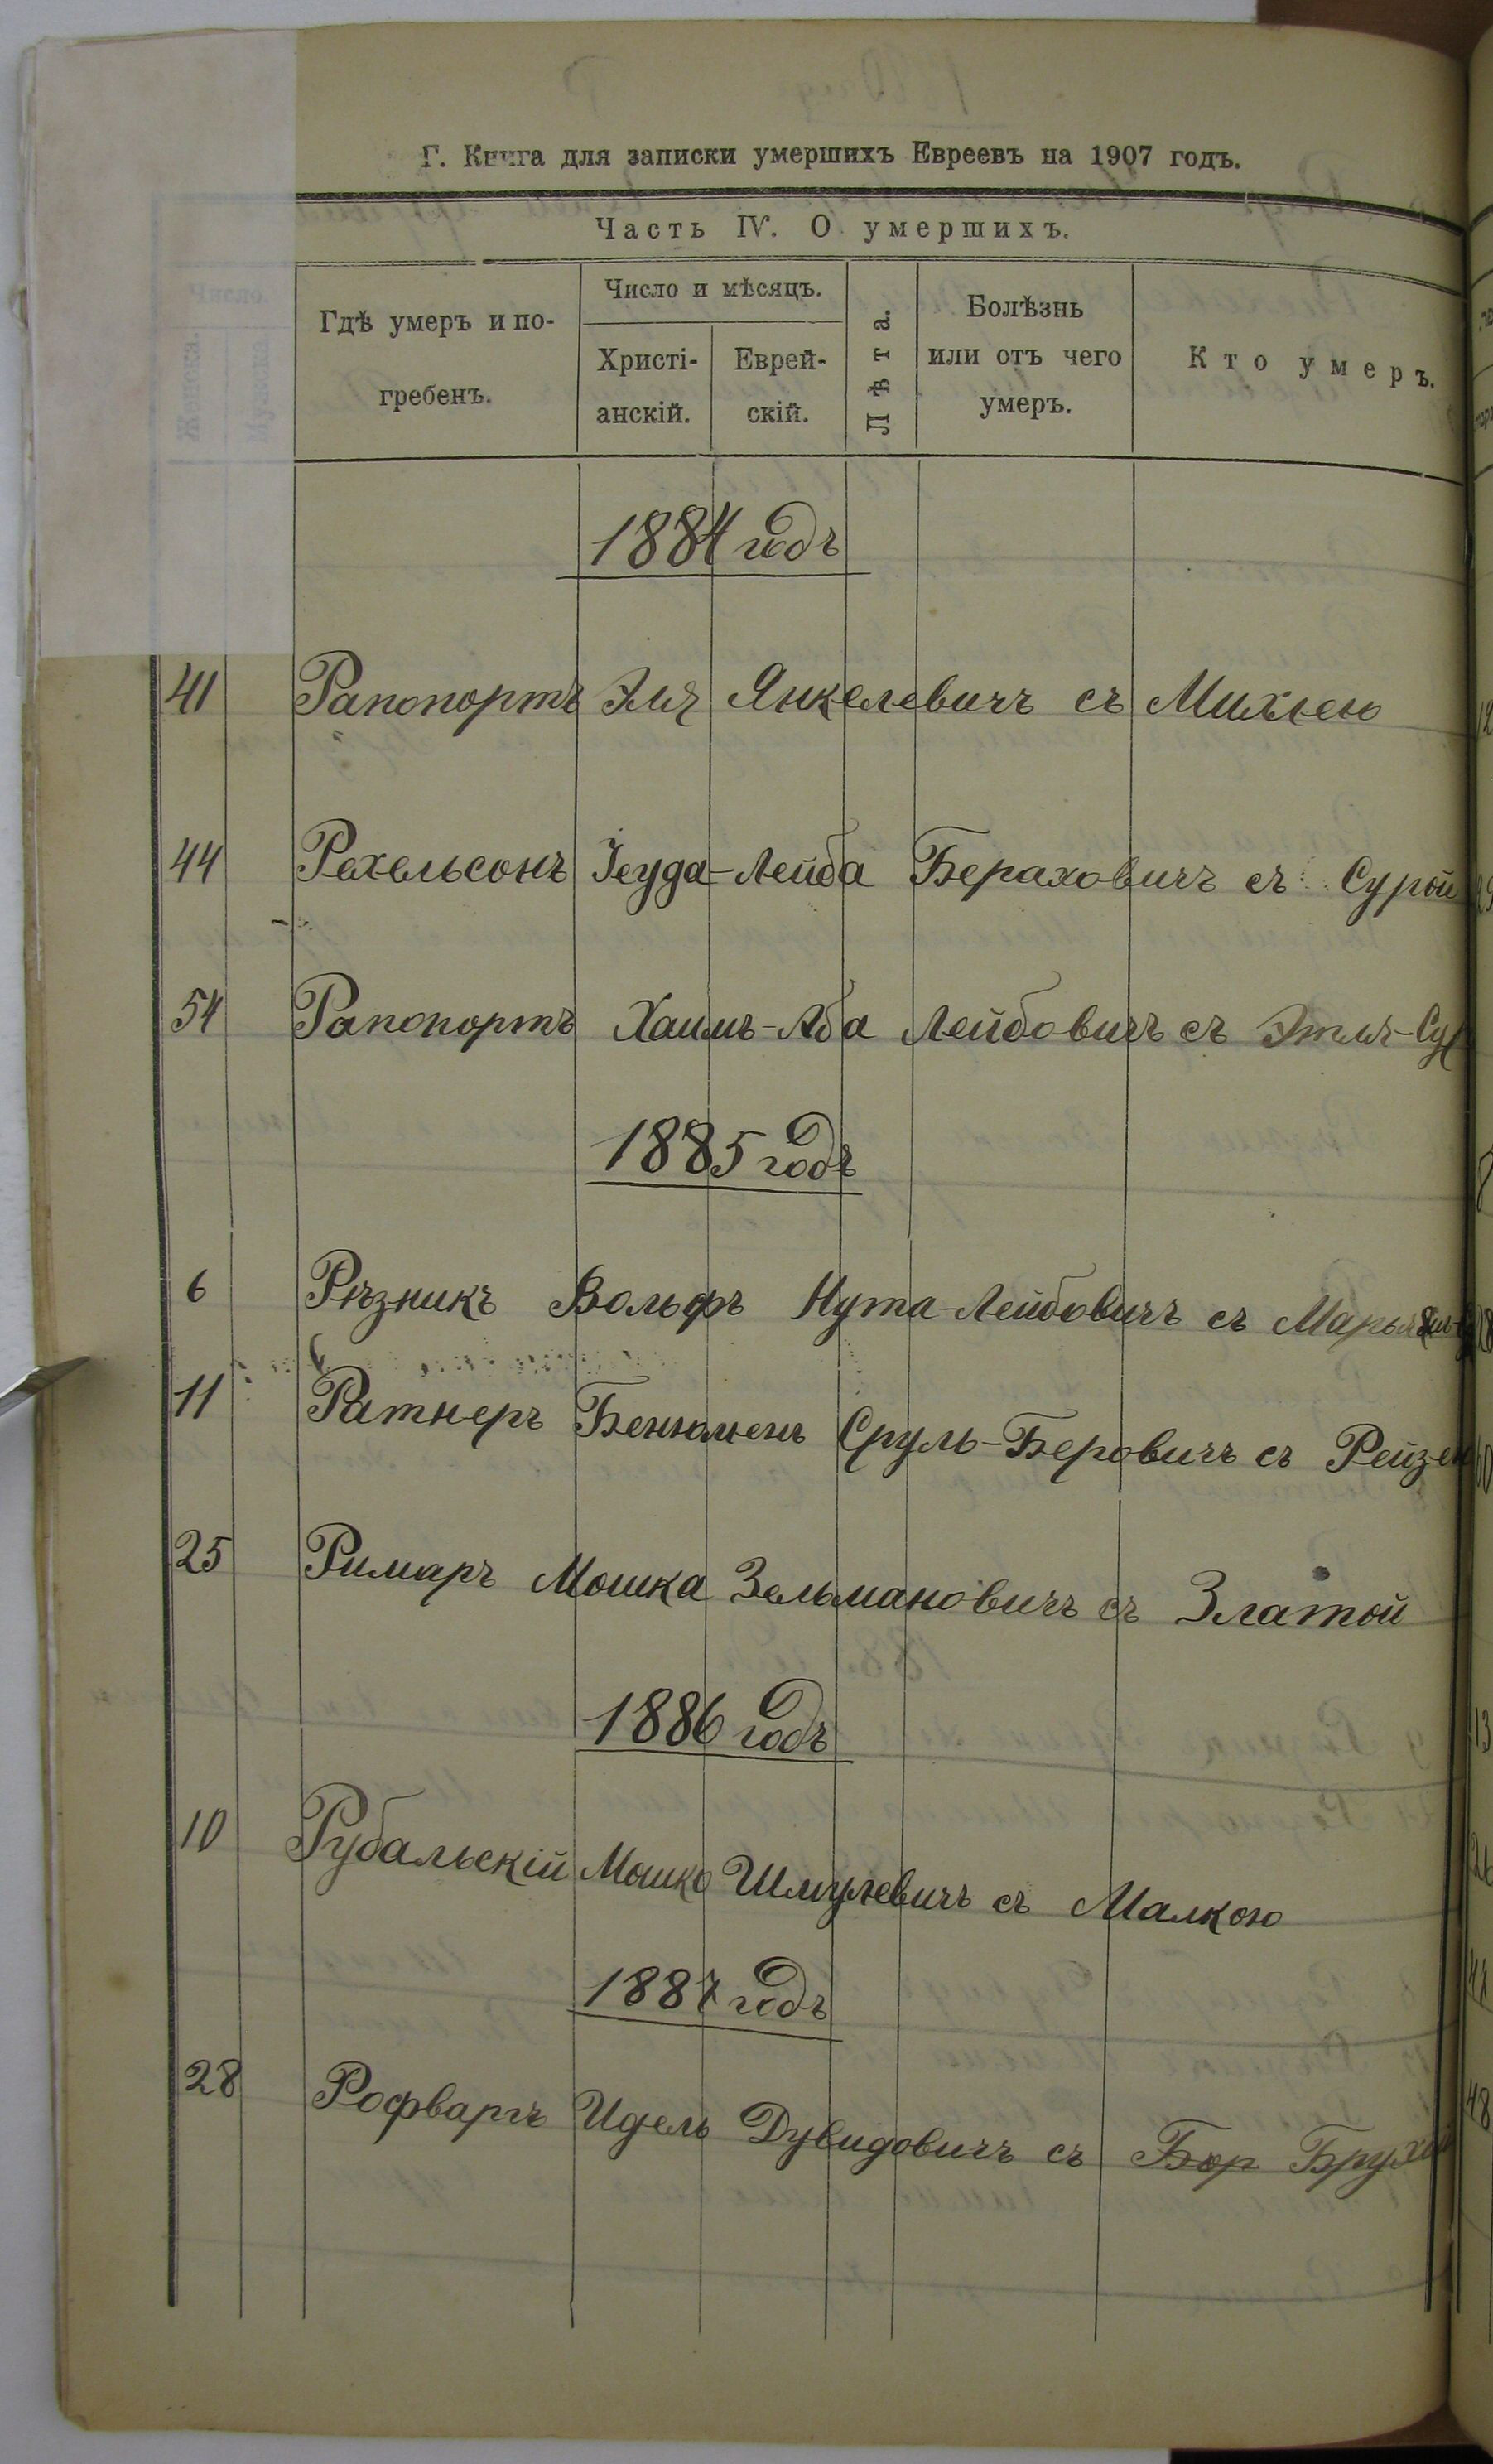 Г. Книга для записки умершихъ Евреевъ на 1907 годъ.
Часть IV. О умершихъ.
Гдѣ умеръ и по-
гребенъ.
Число и мѣсяцъ.
Христі-
анскій.
Еврей-
скій.
Лѣта.
Болѣзнь
или отъ чего
умеръ.
Кто умеръ.
1884 годъ
41 Рапопортъ Эля Янкелевичъ съ Михлею
44 Рехельсонъ Іеуда-Лейба Бераховичъ съ Сурой
54 Рапопортъ Хаимъ-Аба Лейбовичъ съ Этля-Су
1885 годъ
6 Рѣзникъ Вольфъ Нута-Лейбовичъ съ
11 Ратнеръ Бенюменъ Сруль-Беровичъ съ Рейзею
25 Римаръ Мошка Зельмановичъ съ Златой
1886 годъ
10 Рубальскій Мошко Шмулевичъ съ Малкою
1887 годъ
28 Рофваргъ Идель Дувидовичъ съ Брухой